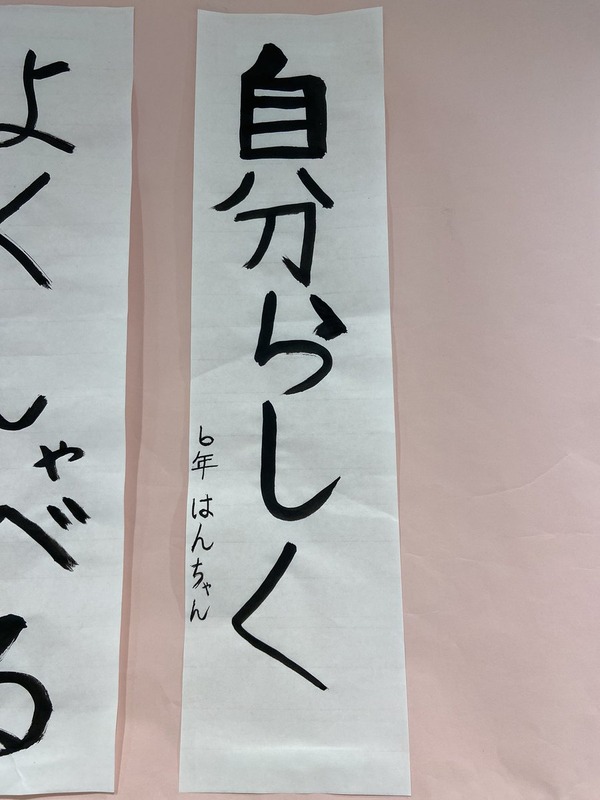 自分らしく
6年 はんちゃん
よくしゃべる